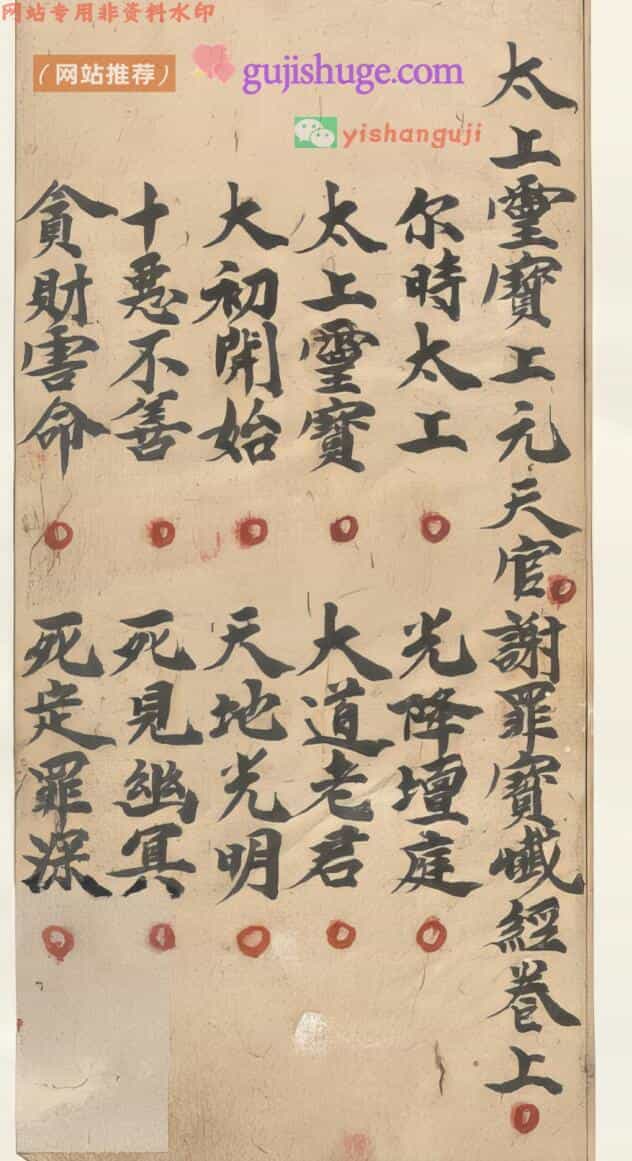 网站专用非资料水印
（网站推荐）
gujishuge.com
yishanguji
太上靈寶上元天官謝罪寶懴經卷上
尔時太上 光降壇庭
太上靈寶 大道老君
大初開始 天地光明
十惡不善 死見幽冥
貪財害命 死定罪深